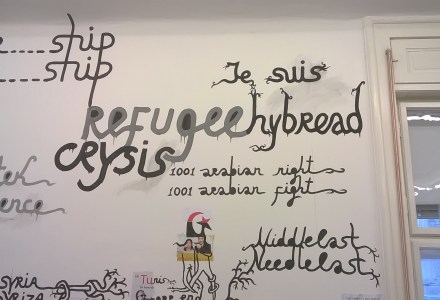 ship
ship
Je suis
refugee hybread
crysis
1001 arabian right
1001 arabian fight
ence
Middle east
Needle east
SYRIA
Tunis